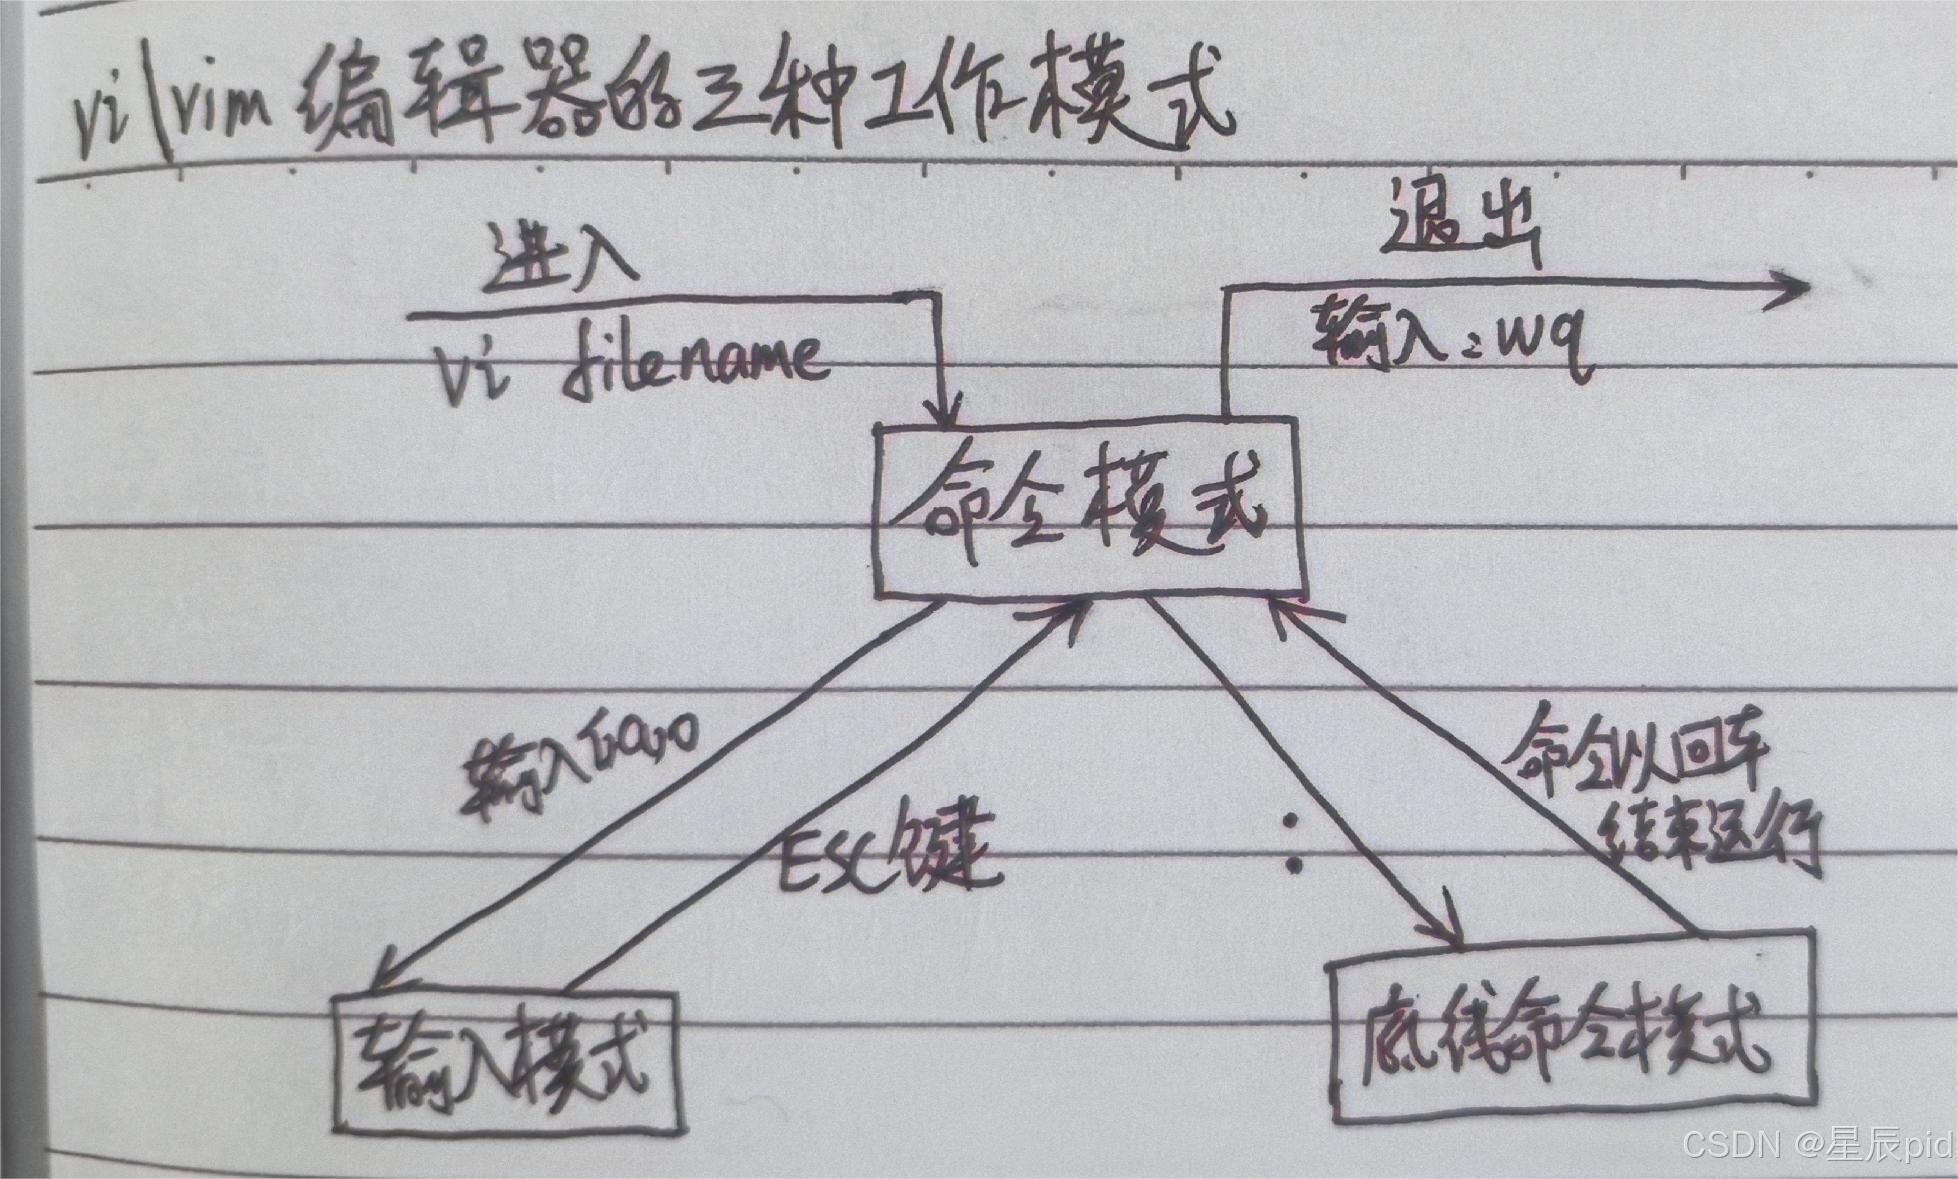 vi\vim 编辑器的三种工作模式
进入
退出
vi filename
输入:wq
命令模式
输入i,a,o
命令以回车
结束运行
ESC键
:
输入模式
底线命令模式
CSDN @星辰pid